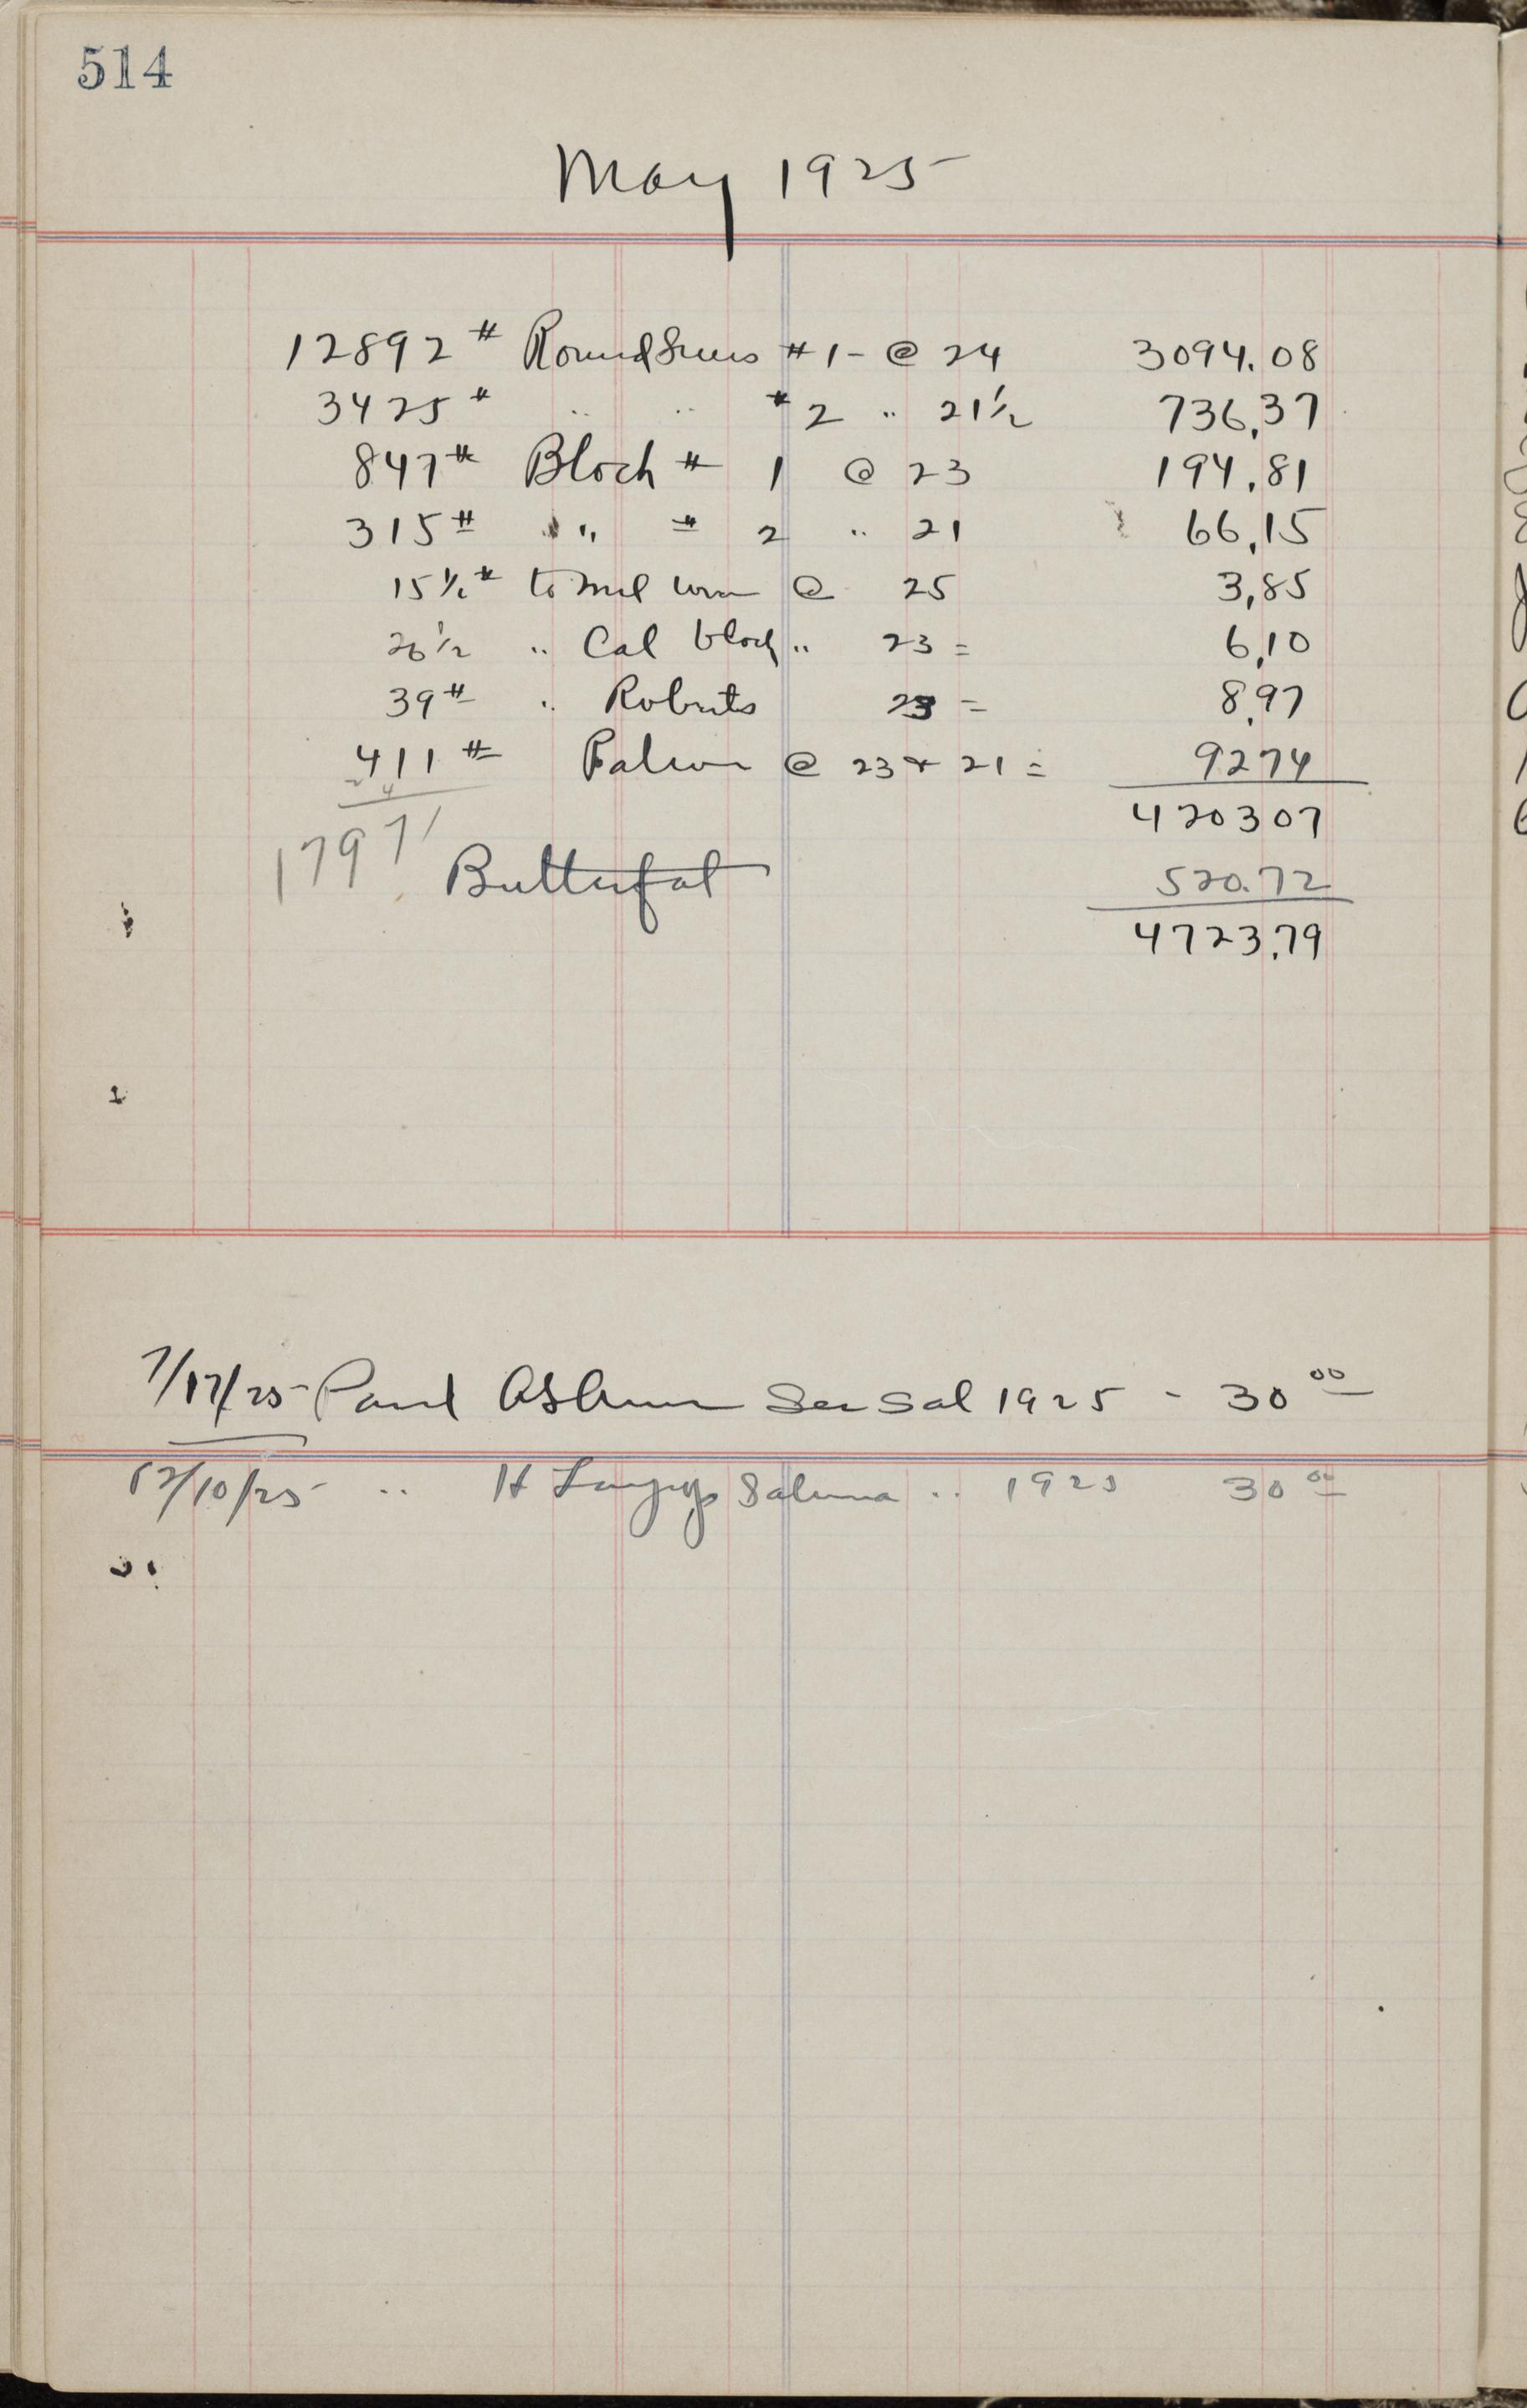 514
May 1925
12892 # Round Swiss #1 - @ 24 3094.08
3425 # " " #2 " 21½ 736,37
847 # Block # 1 @ 23 194,81
315 # " # 2 " 21 66,15
15½ # to @ 25 3,85
26½ " Cal block " 23 = 6,10
39 # " Roberts 23 = 8,97
411 # @ 23 + 21 = 9274
420307
17971 Butterfat 520.72
4723.79
7/17/25 Paul Sec Sal 1925 - 30 00
12/10/25 " H Salema " 1925 30 00